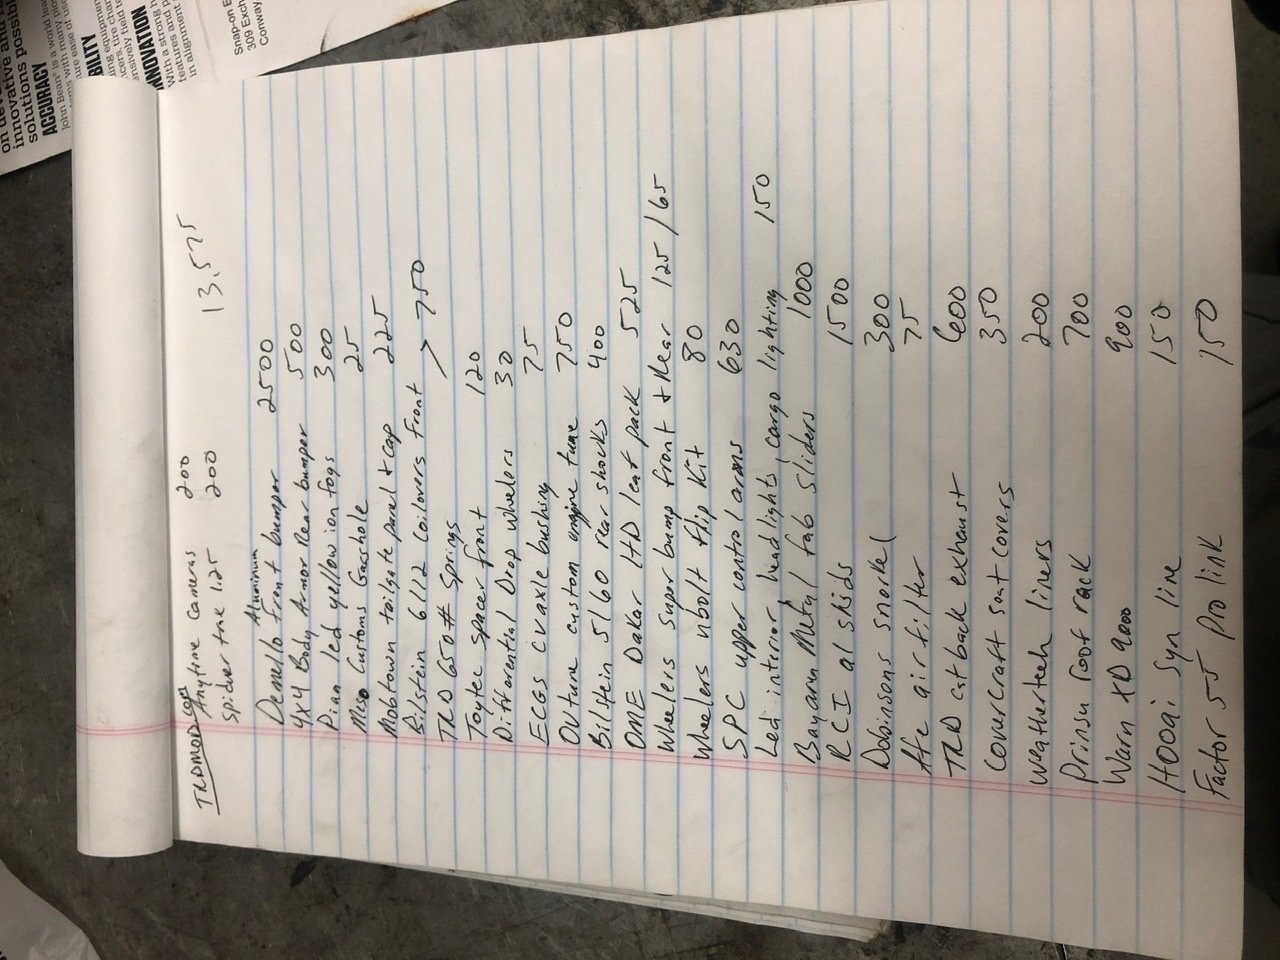 on dev
innovative and
solutions possible
ACCURACY
John Bean® is a world lead
BILITY
INNOVATION
With a strong h
features and p
in alignment
Snap-on E
309 Exch
Conway
TRDMOD
Anytime Cameras 200
Spider trax 1.25 200
13,575
Aluminum
Demello front bumper 2500
4x4 Body Armor Rear bumper 500
Dian led yellow ion fogs 300
Miso Customs Gasshole 25
Mobtown tailgate panel + cap 225
Bilstein 6112 coilovers front > 750
TRD 650# Springs
Toytec spacer front 120
Differential Drop wheelers 30
ECGS cv axle bushing 75
OVtune custom engine tune 750
Bilstein 5160 rear shocks 400
OME Dakar HD leaf pack 525
Wheelers super bump front + Rear 125/65
Wheelers ubolt flip Kit 80
SPC upper control arms 630
Led interior headlights, cargo lighting 150
Bayarea Metal fab sliders 1000
RCI al skids 1500
Dobinsons snorkel 300
Afe air filter 75
TRD cat back exhaust 600
Covercraft seat covers 350
Weathertech liners 200
Prinsu roof rack 700
Warn XD 9000 900
HOOai Syn line 150
Factor 55 Pro link 150